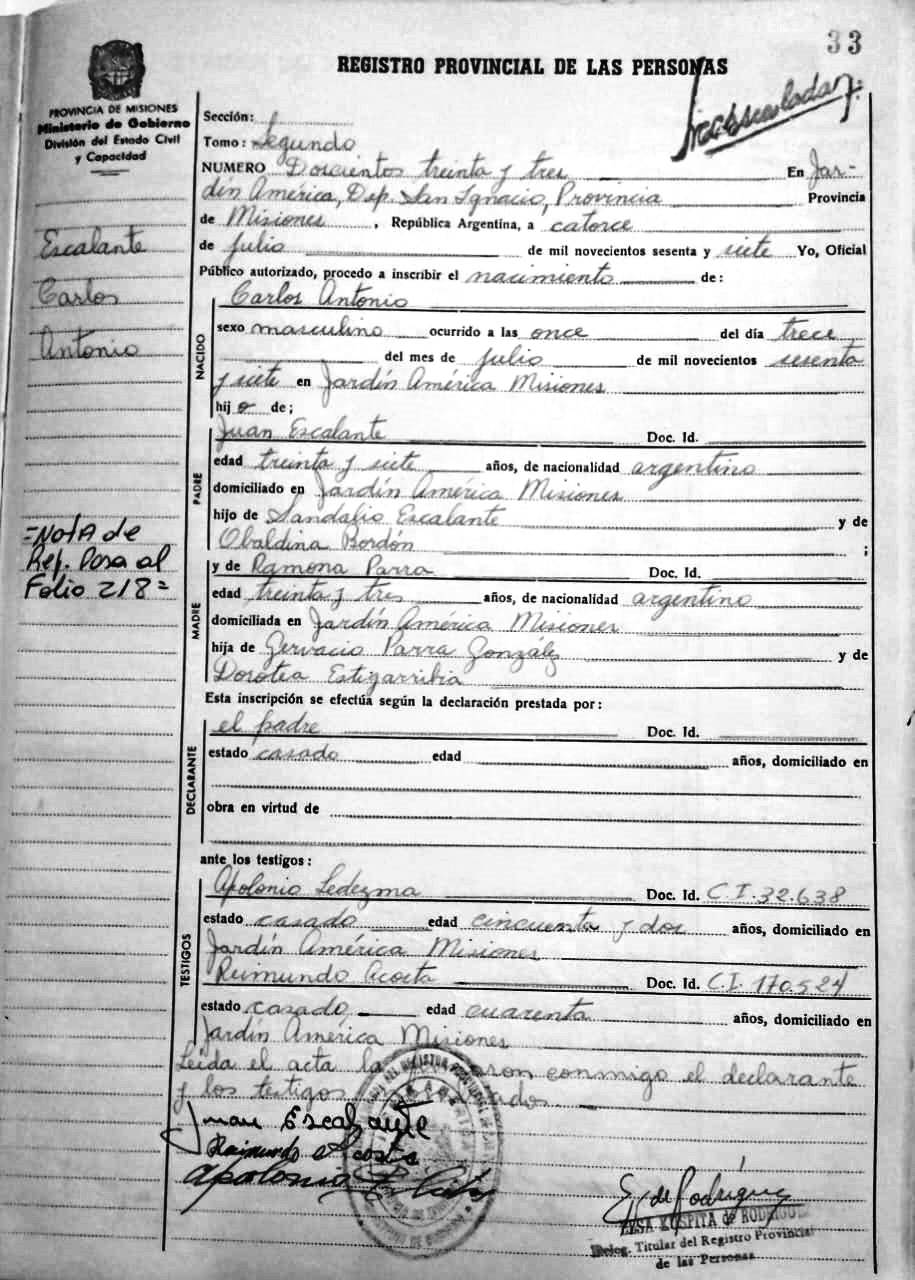 33
REGISTRO PROVINCIAL DE LAS PERSONAS
PROVINCIA DE MISIONES
Ministerio de Gobierno
División del Estado Civil
y Capacidad
Sección:
Tomo: Segundo
NUMERO Doscientos treinta y tres En Jar-
dín América, Dep. San Ignacio, Provincia Provincia
de Misiones, República Argentina, a catorce
de julio de mil novecientos sesenta y siete Yo, Oficial
Público autorizado, procedo a inscribir el nacimiento de:
Escalante
Carlos
Antonio
NACIDO
Carlos Antonio
sexo masculino ocurrido a las once del día trece
del mes de julio de mil novecientos sesenta
y siete en Jardín América Misiones
hijo de;
PADRE
Juan Escalante Doc. Id.
edad treinta y siete años, de nacionalidad argentino
domiciliado en Jardín América Misiones
hijo de Sandalio Escalante y de
Obaldina Bordón ;
=NotA de
Ref. Pasa al
Folio 218=
MADRE
y de Ramona Parra Doc. Id.
edad treinta y tres años, de nacionalidad argentino
domiciliada en Jardín América Misiones
hija de Gervacio Parra González y de
Dorotea Estigarribia
Esta inscripción se efectúa según la declaración prestada por:
DECLARANTE
el padre Doc. Id.
estado casado edad años, domiciliado en
obra en virtud de
ante los testigos:
TESTIGOS
Apolonio Ledezma Doc. Id. C.I. 32.638
estado casado edad cincuenta y dos años, domiciliado en
Jardín América Misiones
Reimundo Acosta Doc. Id. C.I. 170.524
estado casado edad cuarenta años, domiciliado en
Jardín América Misiones
Leída el acta la conmigo el declarante
y los testigos
Juan Escalante
Raimundo Acosta
Apolonio
E. de Rodríguez
ELSA KOSPITA de RODRIGUEZ
Deleg. Titular del Registro Provincial
de las Personas